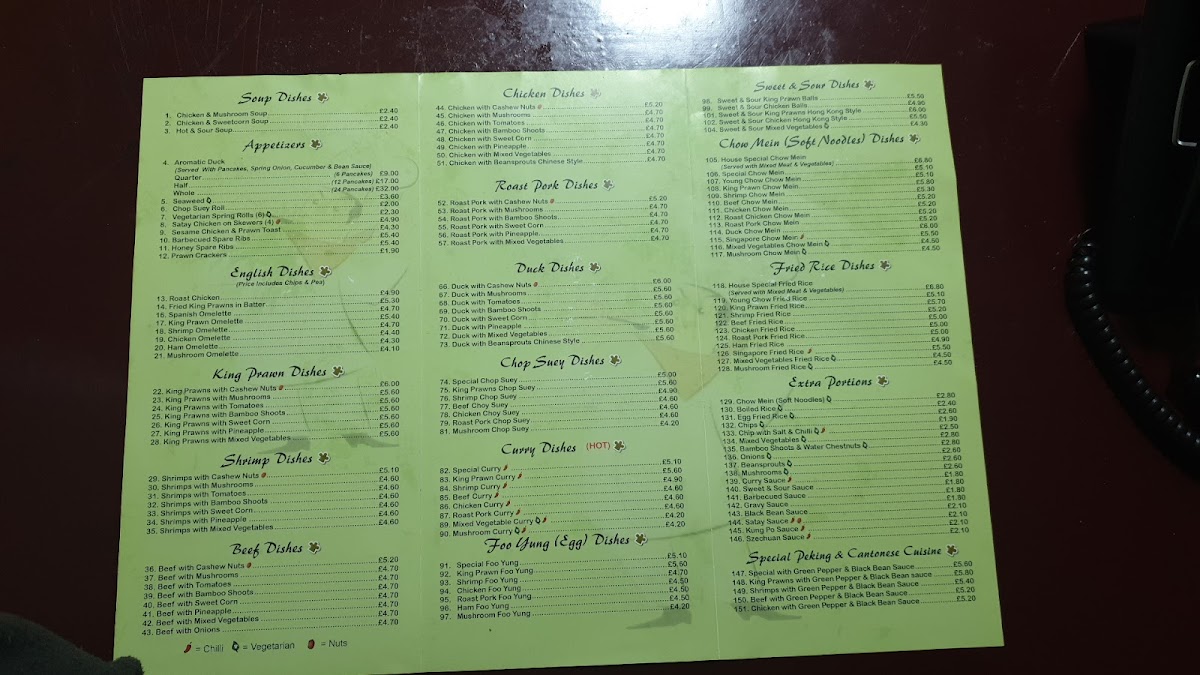 Soup Dishes
1. Chicken & Mushroom Soup £2.40
2. Chicken & Sweetcorn Soup £2.40
3. Hot & Sour Soup £2.40
Appetizers
4. Aromatic Duck
(Served With Pancakes, Spring Onion, Cucumber & Bean Sauce)
Quarter (6 Pancakes) £9.00
Half (12 Pancakes) £17.00
Whole (24 Pancakes) £32.00
5. Seaweed £3.60
6. Chop Suey Roll £2.00
7. Vegetarian Spring Rolls (6) £2.30
8. Satay Chicken on Skewers (4) £4.90
9. Sesame Chicken & Prawn Toast £4.30
10. Barbecued Spare Ribs £5.40
11. Honey Spare Ribs £5.40
12. Prawn Crackers £1.90
English Dishes
(Price Includes Chips & Pea)
13. Roast Chicken £4.90
14. Fried King Prawns in Batter £5.30
16. Spanish Omelette £4.70
17. King Prawn Omelette £5.40
18. Shrimp Omelette £4.70
19. Chicken Omelette £4.40
20. Ham Omelette £4.30
21. Mushroom Omelette £4.10
King Prawn Dishes
22. King Prawns with Cashew Nuts £6.00
23. King Prawns with Mushrooms £5.60
24. King Prawns with Tomatoes £5.60
25. King Prawns with Bamboo Shoots £5.60
26. King Prawns with Sweet Corn £5.60
27. King Prawns with Pineapple £5.60
28. King Prawns with Mixed Vegetables £5.60
Shrimp Dishes
29. Shrimps with Cashew Nuts £5.10
30. Shrimps with Mushrooms £4.60
31. Shrimps with Tomatoes £4.60
32. Shrimps with Bamboo Shoots £4.60
33. Shrimps with Sweet Corn £4.60
34. Shrimps with Pineapple £4.60
35. Shrimps with Mixed Vegetables £4.60
Beef Dishes
36. Beef with Cashew Nuts £5.20
37. Beef with Mushrooms £4.70
38. Beef with Tomatoes £4.70
39. Beef with Bamboo Shoots £4.70
40. Beef with Sweet Corn £4.70
41. Beef with Pineapple £4.70
42. Beef with Mixed Vegetables £4.70
43. Beef with Onions £4.70
= Chilli = Vegetarian = Nuts
Chicken Dishes
44. Chicken with Cashew Nuts £5.20
45. Chicken with Mushrooms £4.70
46. Chicken with Tomatoes £4.70
47. Chicken with Bamboo Shoots £4.70
48. Chicken with Sweet Corn £4.70
49. Chicken with Pineapple £4.70
50. Chicken with Mixed Vegetables £4.70
51. Chicken with Beansprouts Chinese Style £4.70
Roast Pork Dishes
52. Roast Pork with Cashew Nuts £5.20
53. Roast Pork with Mushrooms £4.70
54. Roast Pork with Bamboo Shoots £4.70
55. Roast Pork with Sweet Corn £4.70
56. Roast Pork with Pineapple £4.70
57. Roast Pork with Mixed Vegetables £4.70
Duck Dishes
66. Duck with Cashew Nuts £6.00
67. Duck with Mushrooms £5.60
68. Duck with Tomatoes £5.60
69. Duck with Bamboo Shoots £5.60
70. Duck with Sweet Corn £5.60
71. Duck with Pineapple £5.60
72. Duck with Mixed Vegetables £5.60
73. Duck with Beansprouts Chinese Style £5.60
Chop Suey Dishes
74. Special Chop Suey £5.00
75. King Prawns Chop Suey £5.60
76. Shrimp Chop Suey £4.90
77. Beef Choy Suey £4.60
78. Chicken Choy Suey £4.60
79. Roast Pork Chop Suey £4.60
81. Mushroom Chop Suey £4.20
Curry Dishes (HOT)
82. Special Curry £5.10
83. King Prawn Curry £5.60
84. Shrimp Curry £4.90
85. Beef Curry £4.60
86. Chicken Curry £4.60
87. Roast Pork Curry £4.60
89. Mixed Vegetable Curry £4.20
90. Mushroom Curry £4.20
Foo Yung (Egg) Dishes
91. Special Foo Yung £5.10
92. King Prawn Foo Yung £5.60
93. Shrimp Foo Yung £4.70
94. Chicken Foo Yung £4.50
95. Roast Pork Foo Yung £4.50
96. Ham Foo Yung £4.50
97. Mushroom Foo Yung £4.20
Sweet & Sour Dishes
98. Sweet & Sour King Prawn Balls £5.50
99. Sweet & Sour Chicken Balls £4.90
101. Sweet & Sour King Prawns Hong Kong Style £6.00
102. Sweet & Sour Chicken Hong Kong Style £5.50
104. Sweet & Sour Mixed Vegetables £4.30
Chow Mein (Soft Noodles) Dishes
105. House Special Chow Mein £6.80
(Served with Mixed Meat & Vegetables)
106. Special Chow Mein £5.10
107. Young Chow Chow Mein £5.10
108. King Prawn Chow Mein £5.80
109. Shrimp Chow Mein £5.30
110. Beef Chow Mein £5.20
111. Chicken Chow Mein £5.20
112. Roast Chicken Chow Mein £5.20
113. Roast Pork Chow Mein £5.20
114. Duck Chow Mein £6.00
115. Singapore Chow Mein £5.50
116. Mixed Vegetables Chow Mein £4.50
117. Mushroom Chow Mein £4.50
Fried Rice Dishes
118. House Special Fried Rice £6.80
(Served with Mixed Meat & Vegetables)
119. Young Chow Fried Rice £5.10
120. King Prawn Fried Rice £5.70
121. Shrimp Fried Rice £5.20
122. Beef Fried Rice £5.00
123. Chicken Fried Rice £5.00
124. Roast Pork Fried Rice £5.00
125. Ham Fried Rice £4.90
126. Singapore Fried Rice £5.50
127. Mixed Vegetables Fried Rice £4.50
128. Mushroom Fried Rice £4.50
Extra Portions
129. Chow Mein (Soft Noodles) £2.80
130. Boiled Rice £2.40
131. Egg Fried Rice £2.60
132. Chips £1.90
133. Chip with Salt & Chilli £2.50
134. Mixed Vegetables £2.80
135. Bamboo Shoots & Water Chestnuts £2.80
136. Onions £2.60
137. Beansprouts £2.60
138. Mushrooms £2.60
139. Curry Sauce £1.80
140. Sweet & Sour Sauce £1.80
141. Barbecued Sauce £1.80
142. Gravy Sauce £1.80
143. Black Bean Sauce £2.10
144. Satay Sauce £2.10
145. Kung Po Sauce £2.10
146. Szechuan Sauce £2.10
Special Peking & Cantonese Cuisine
147. Special with Green Pepper & Black Bean Sauce £5.60
148. King Prawns with Green Pepper & Black Bean sauce £5.80
149. Shrimps with Green Pepper & Black Bean Sauce £5.40
150. Beef with Green Pepper & Black Bean Sauce £5.20
151. Chicken with Green Pepper & Black Bean Sauce £5.20